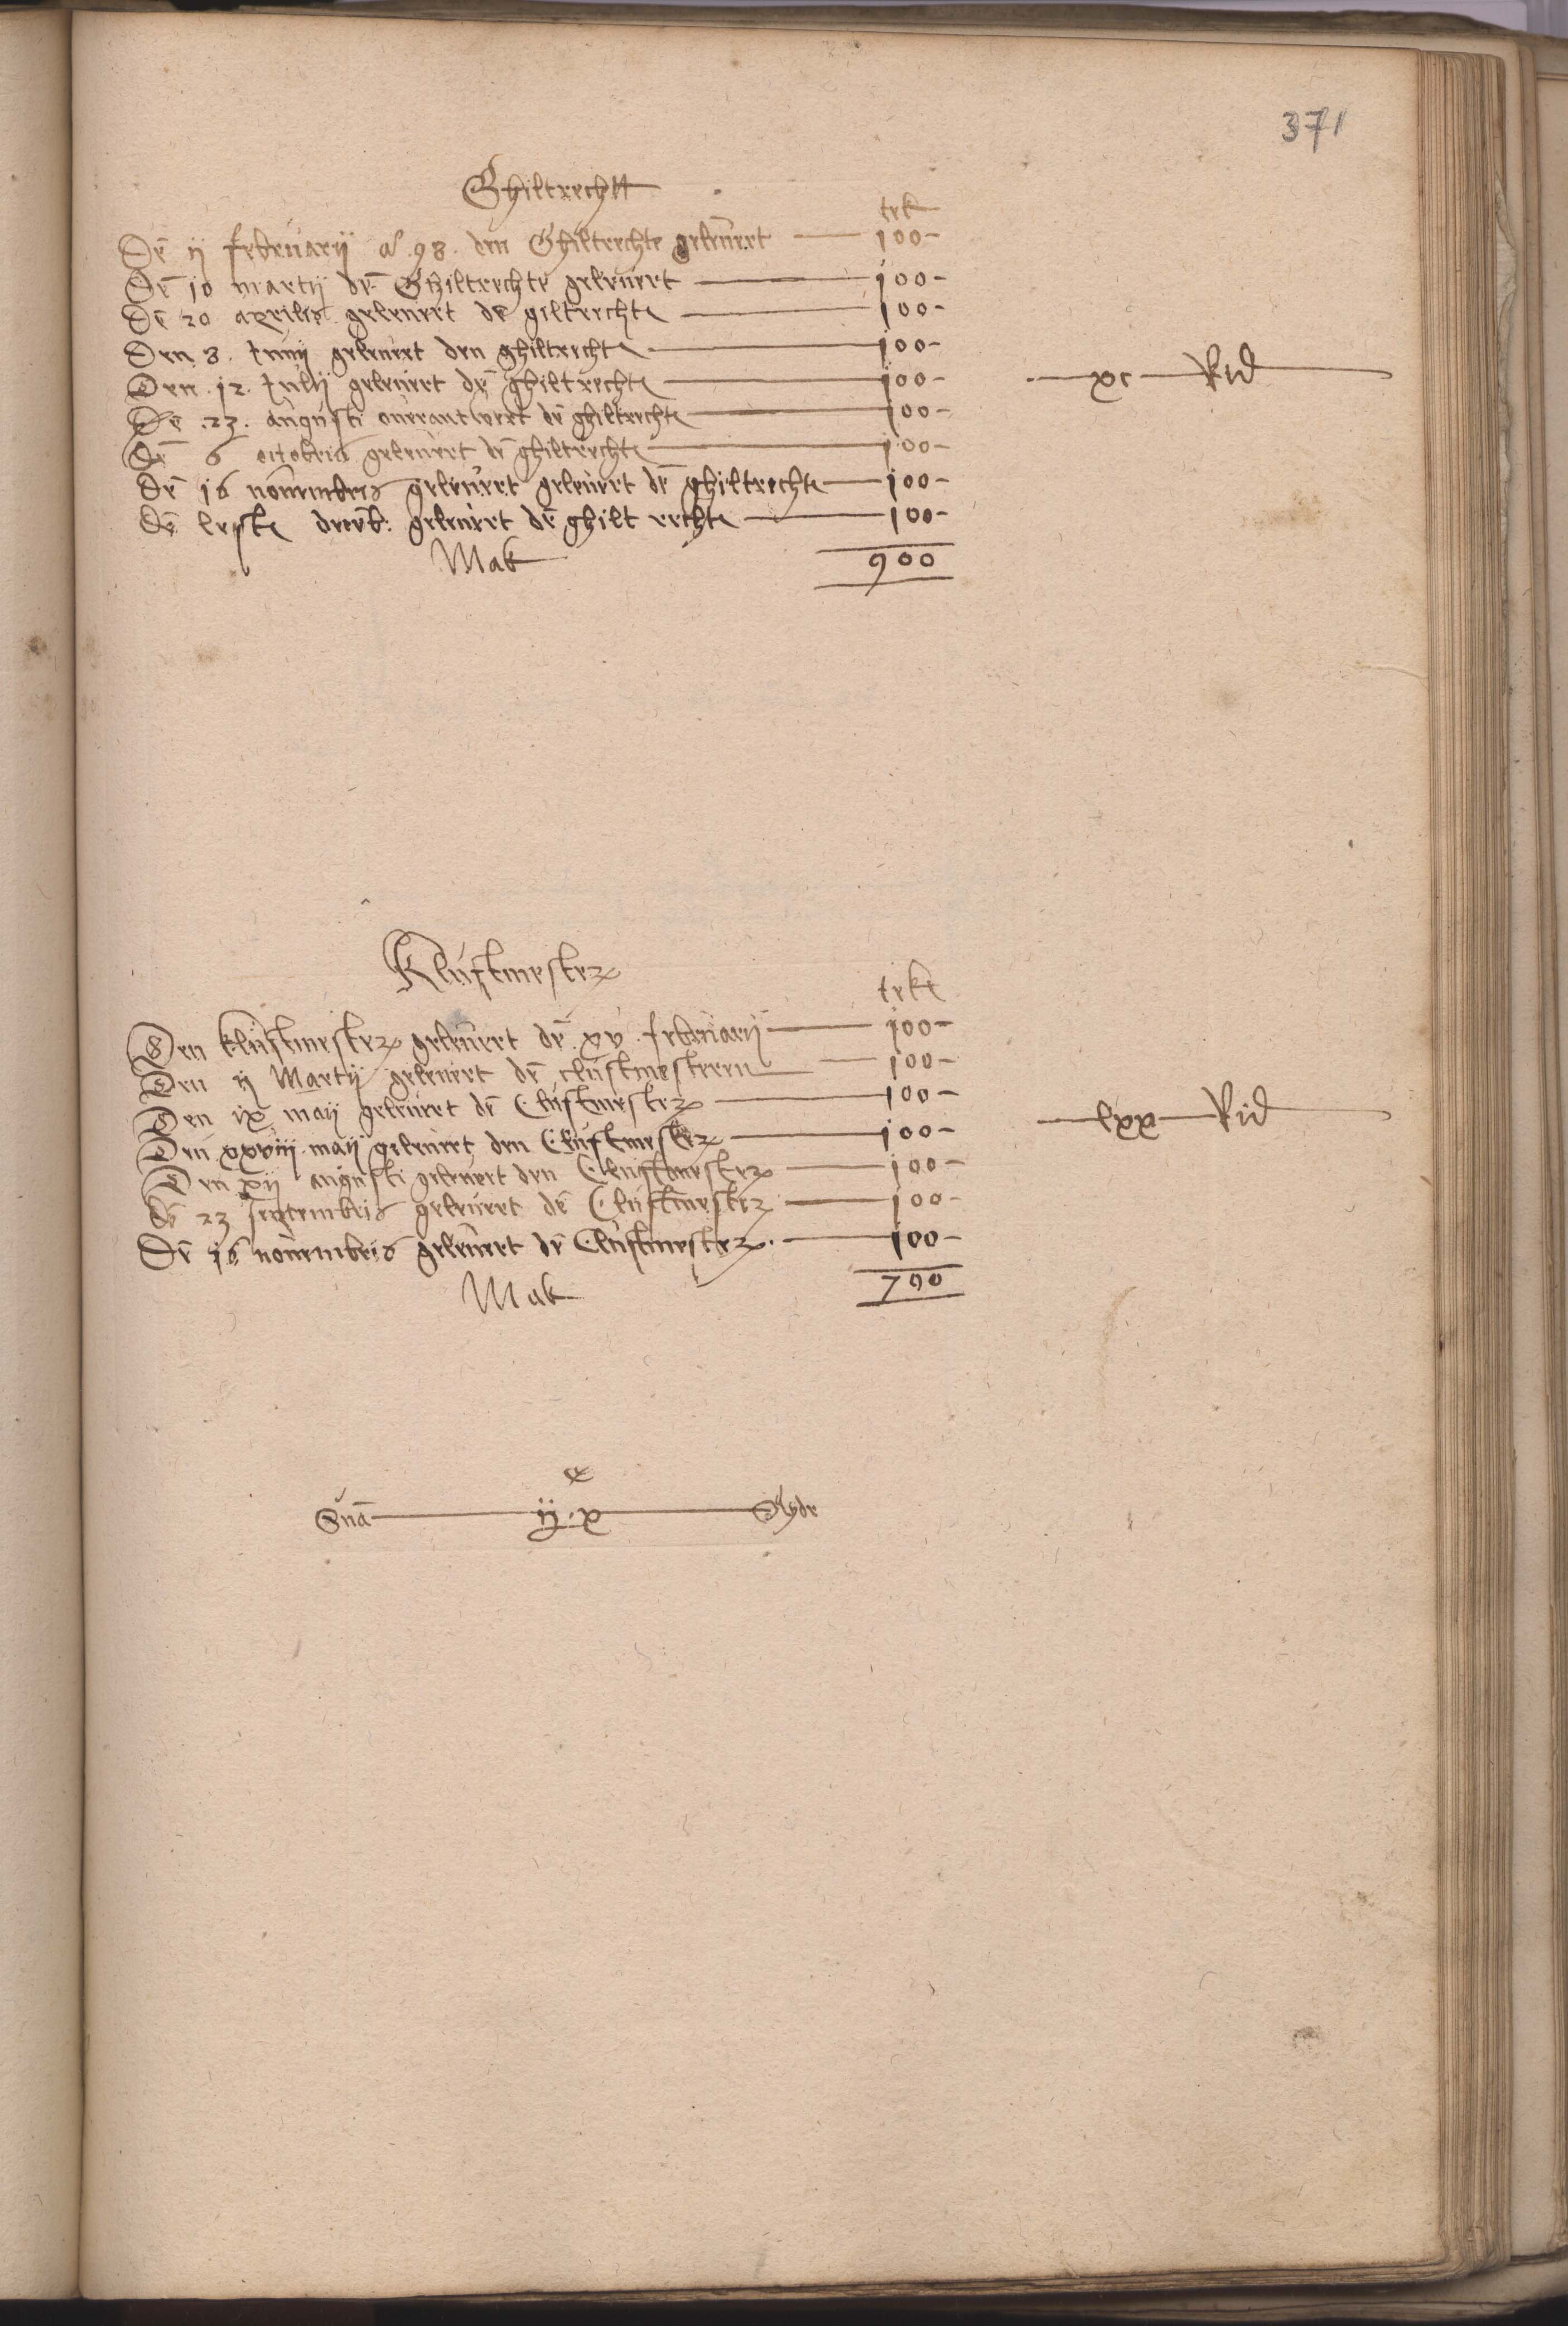 371
Ghiltrechtt
tek
Dē ij february aº 98. den Ghiltrechte geleuert 100-
Dē 10 martij dē Ghiltrechte geleuert 100-
Dē 20 aprilis geleuert dē giltrechte 100-
Den 8. Junij geleuert den ghiltrechte 100-
Den .12. Julij geleuert dē ghiltrechte 100- xc Rid
Dē .23. augusti ouerantwert dē ghiltrechte 100-
Dē 6 octobris geleuert dē ghiltrechte 100-
Dē 16 nouembris geleuert geleuert dē ghiltrechte 100-
Dē leste decēb: geleuert dē ghilt rechte 100-
Mak 900
Kluftmesters
teke
Den kluftmesters geleuert dē xv februarij 100-
Den ij Martij geleuert dē cluftmesteren 100-
Den ix maij geleuert dē Cluftmesters 100-
Den xxviij maij geleuert den Cluftmesters 100- lxx Rid
Den xij augusti geleuert den Cleuftmesters 100-
dē 23 septembris geleuert dē Cluftmesters 100-
Dē 16 nouembris geleuert dē Cluftmesters. 100-
Mak 700
Suā ij.x Ryde